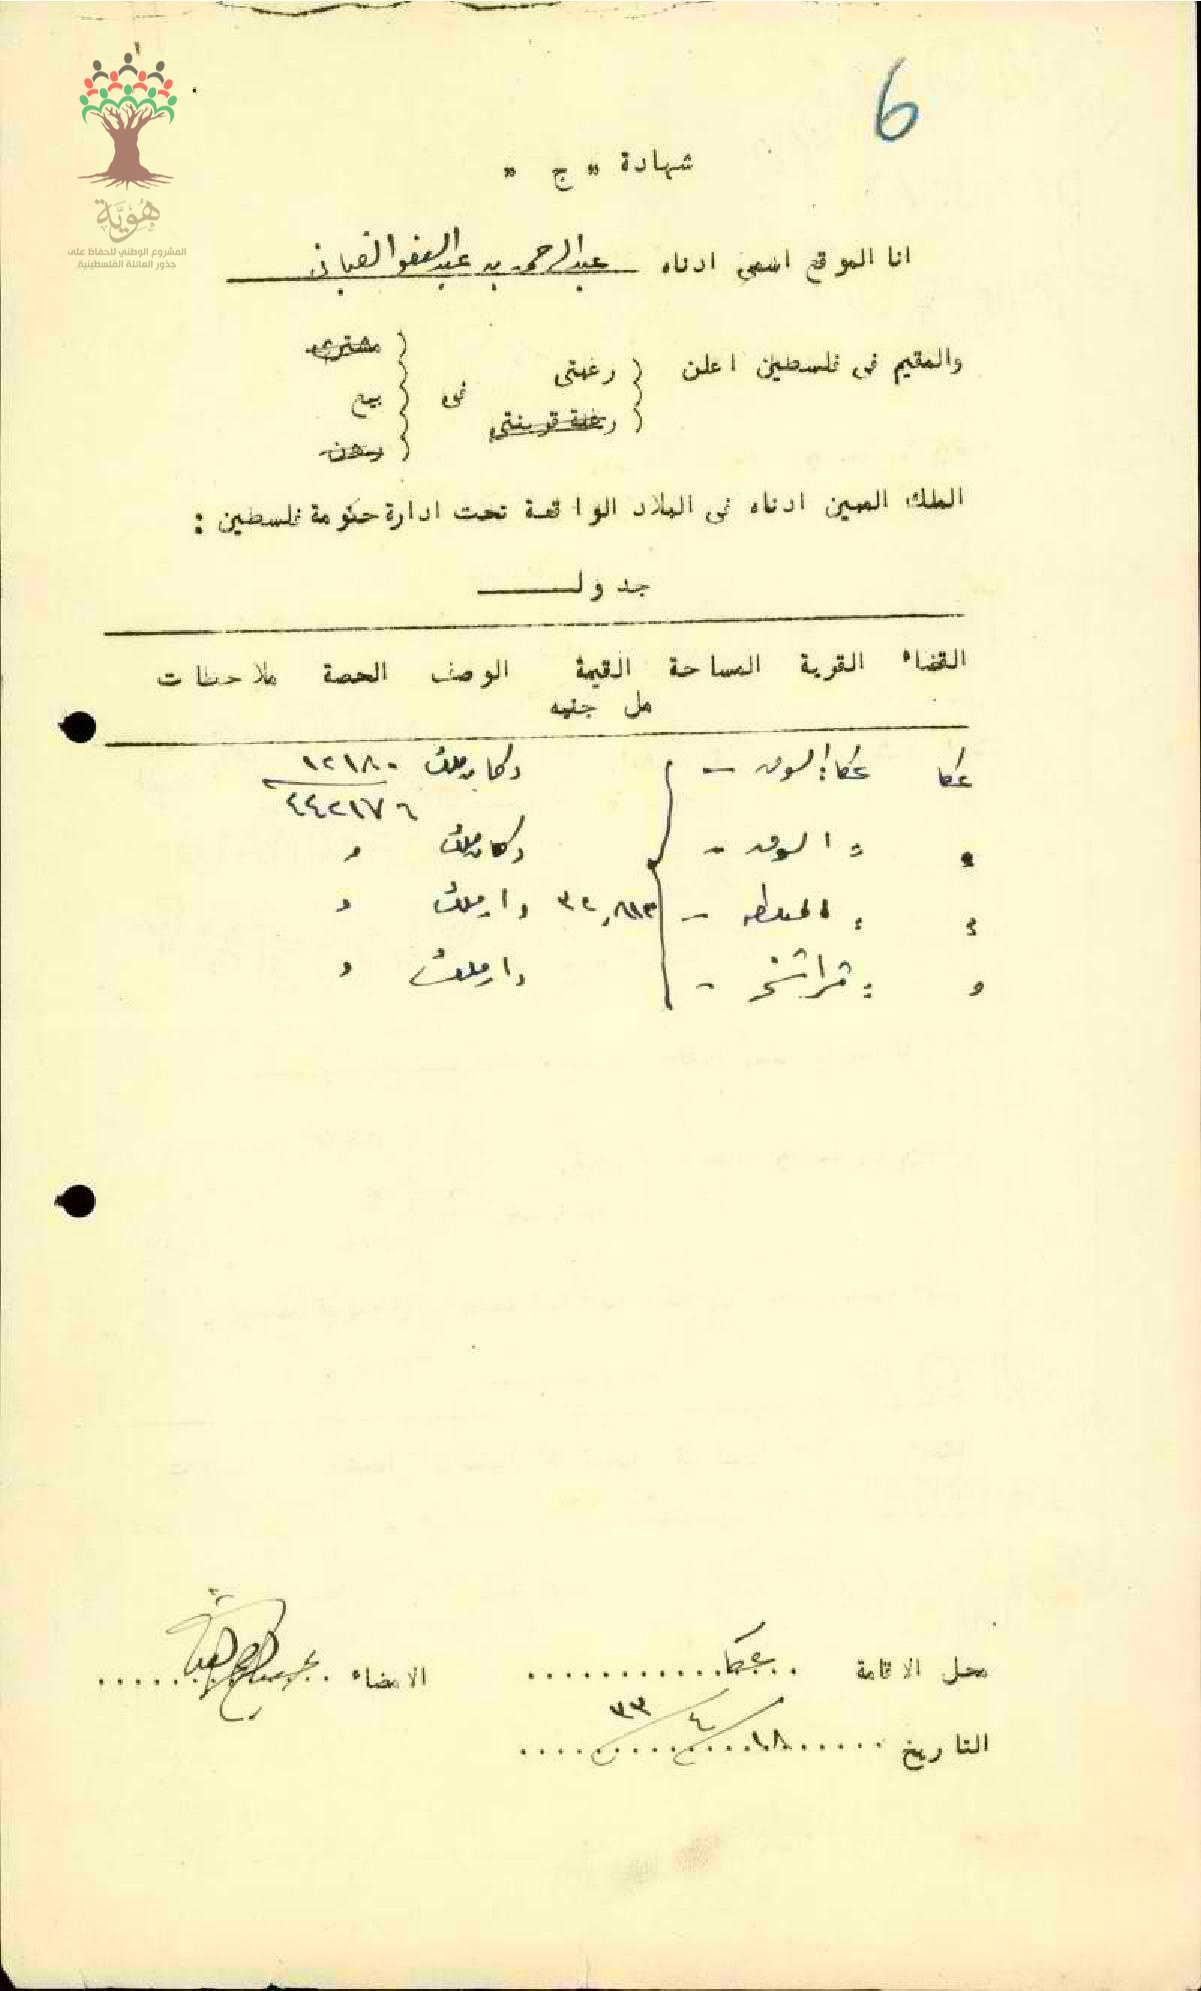 6
هُوِيَّة
المشروع الوطني للحفاظ على
جذور العائلة الفلسطينية
شهادة " ج "
انا الموقع اسمي ادناه عبد الرحمن بن عبد العفو القباني
والمقيم في فلسطين اعلن رغبتي في مشترى
رغبة قرينتي بيع
رهن
الملك المبين ادناه في البلاد الواقعة تحت ادارة حكومة فلسطين :
جدول
القضاء القرية المساحة القيمة الوصف الحصة ملاحظات
مل جنيه
عكا عكا: السوق - دكان ملك ١٢١٨٠
٤٤٢١٧٦
" " السوق - دكان ملك "
" " - ٣٢,٨١٣ دار ملك "
" " - دار ملك "
محل الاقامة عكا الامضاء
التاريخ ١٨/٤/٣٣